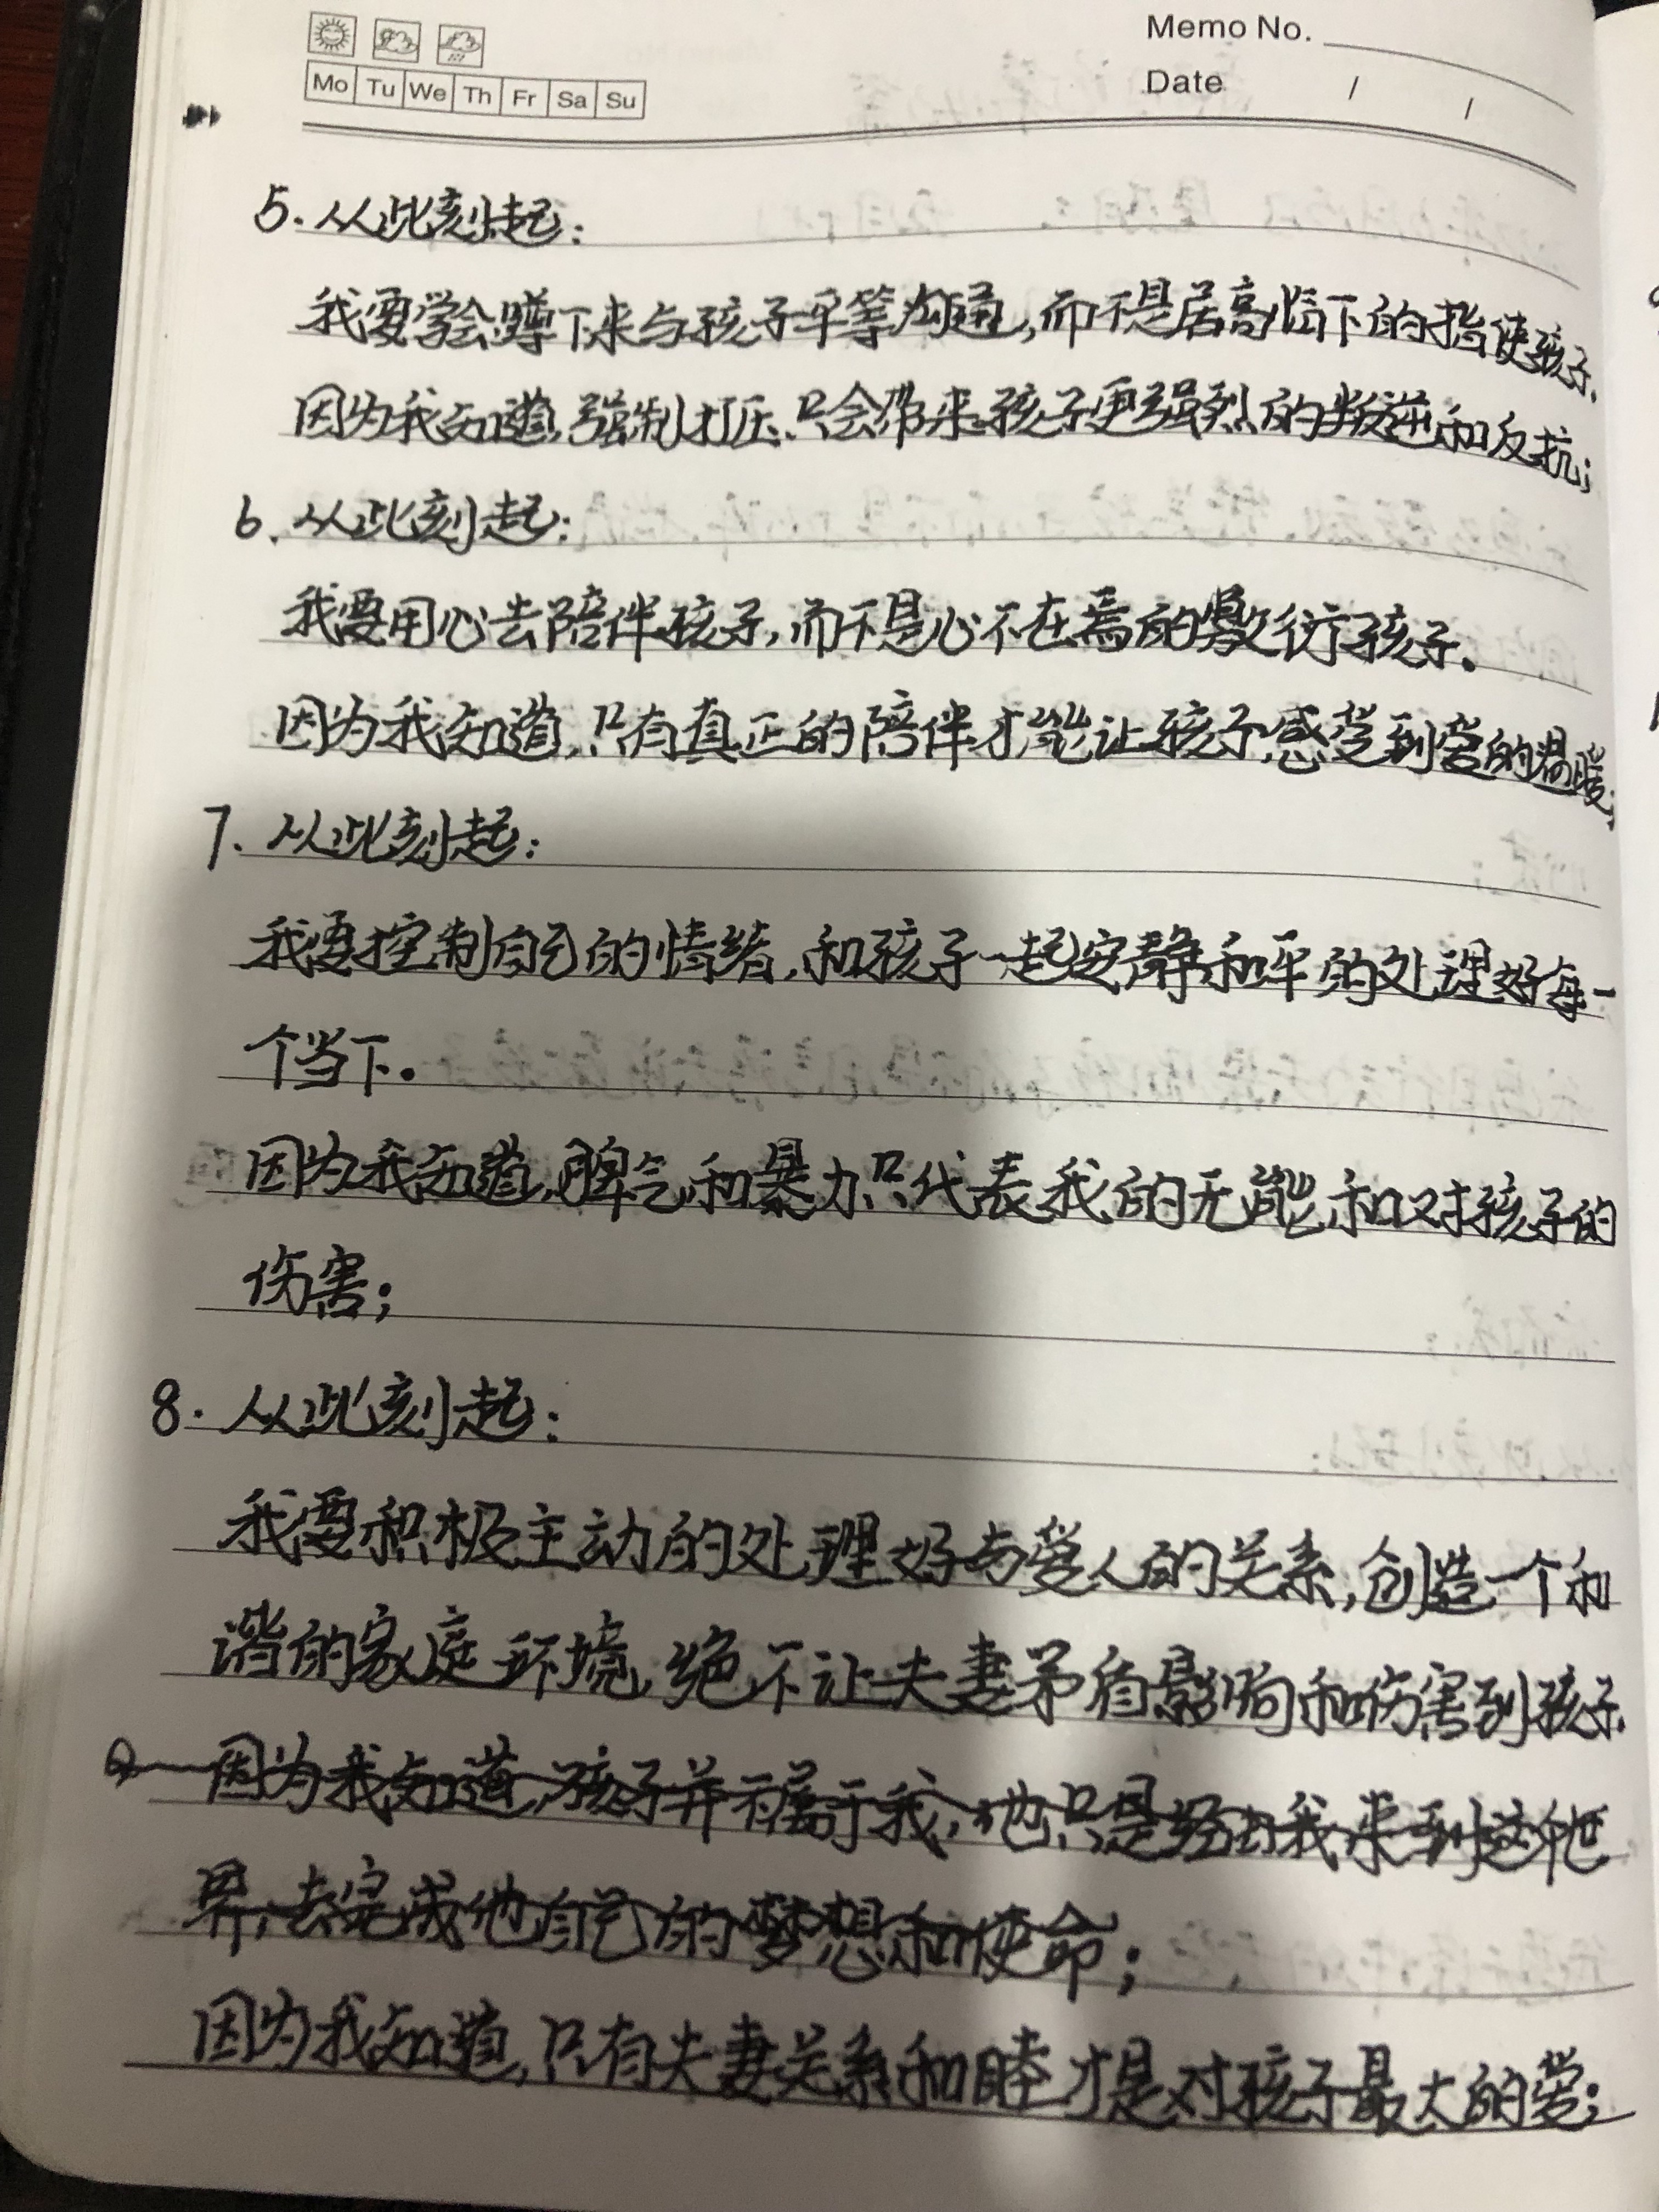 Memo No.
Mo Tu We Th Fr Sa Su
Date / /
5. 从此刻起：
我要学会蹲下来与孩子平等沟通，而不是居高临下的指使孩子．
因为我知道，强制打压．只会带来孩子更强烈的叛逆和反抗；
6. 从此刻起：
我要用心去陪伴孩子，而不是心不在焉的敷衍孩子．
因为我知道，只有真正的陪伴才能让孩子感受到爱的温暖；
7. 从此刻起：
我要控制自己的情绪，和孩子一起安静和平的处理好每一
个当下．
因为我知道，脾气和暴力只代表我的无能，和对孩子的
伤害；
8. 从此刻起：
我要积极主动的处理好与爱人的关系，创造一个和
谐的家庭环境，绝不让夫妻矛盾影响和伤害到孩子．
因为我知道，孩子并不属于我，他只是经由我来到这个世
界，去完成他自己的梦想和使命；
因为我知道，只有夫妻关系和睦才是对孩子最大的爱；